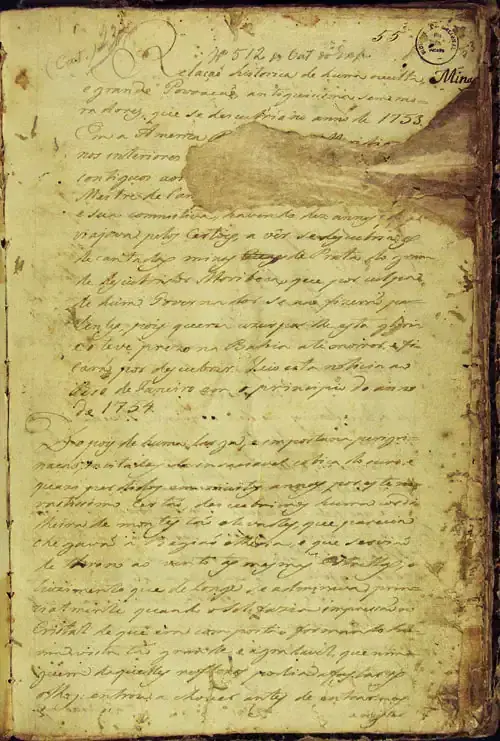 55
(Cat.
Nº 512 do Cat. da Exp.
Relação historica de huma occulta,
e grande Povoação antiquissima sem mo-
radores, que se descubriu no anno de 1753.
Em a America
nos interiores
contiguos aos
Mestre de Can
e sua comitiva, havendo dez annos, q
viajava pelos certoens, a ver se descubria
decantadas minas de Prata do gran
de descubridor Moribeca, que por culpa
de hum Governador se naõ fizeraõ pa-
tentes, pois queria uzurparlhe esta gloria
e o teve prezo na Bahia ate morrer, e fi
caraõ por descubrir. Veio esta noticia ao
Rio de Janeiro em o principio do anno
de 1754.
Depois de huma larga, e importuna peregri-
naçaõ, incitados da insaciavel cobiça do ouro, e
quazi perdidos em muitos annos por este vas-
tissimo Certaõ, descubrimos huma cordi-
lheira de montes taõ elevados, que parecia
chegavaõ a Regiaõ etherea, e que serviaõ
de throno ao vento, as mesmas Estrellas; o
luzimento que de longe se admirava, prin-
cipalmente quando o Sol fazia impressaõ ao
Cristal de que era composta e formando hu-
ma vista taõ grande e agradavel, que nin-
guem daquelles reflexos podia afastar os
olhos: entrou a chover antes de entrarmos
a registar
Minas